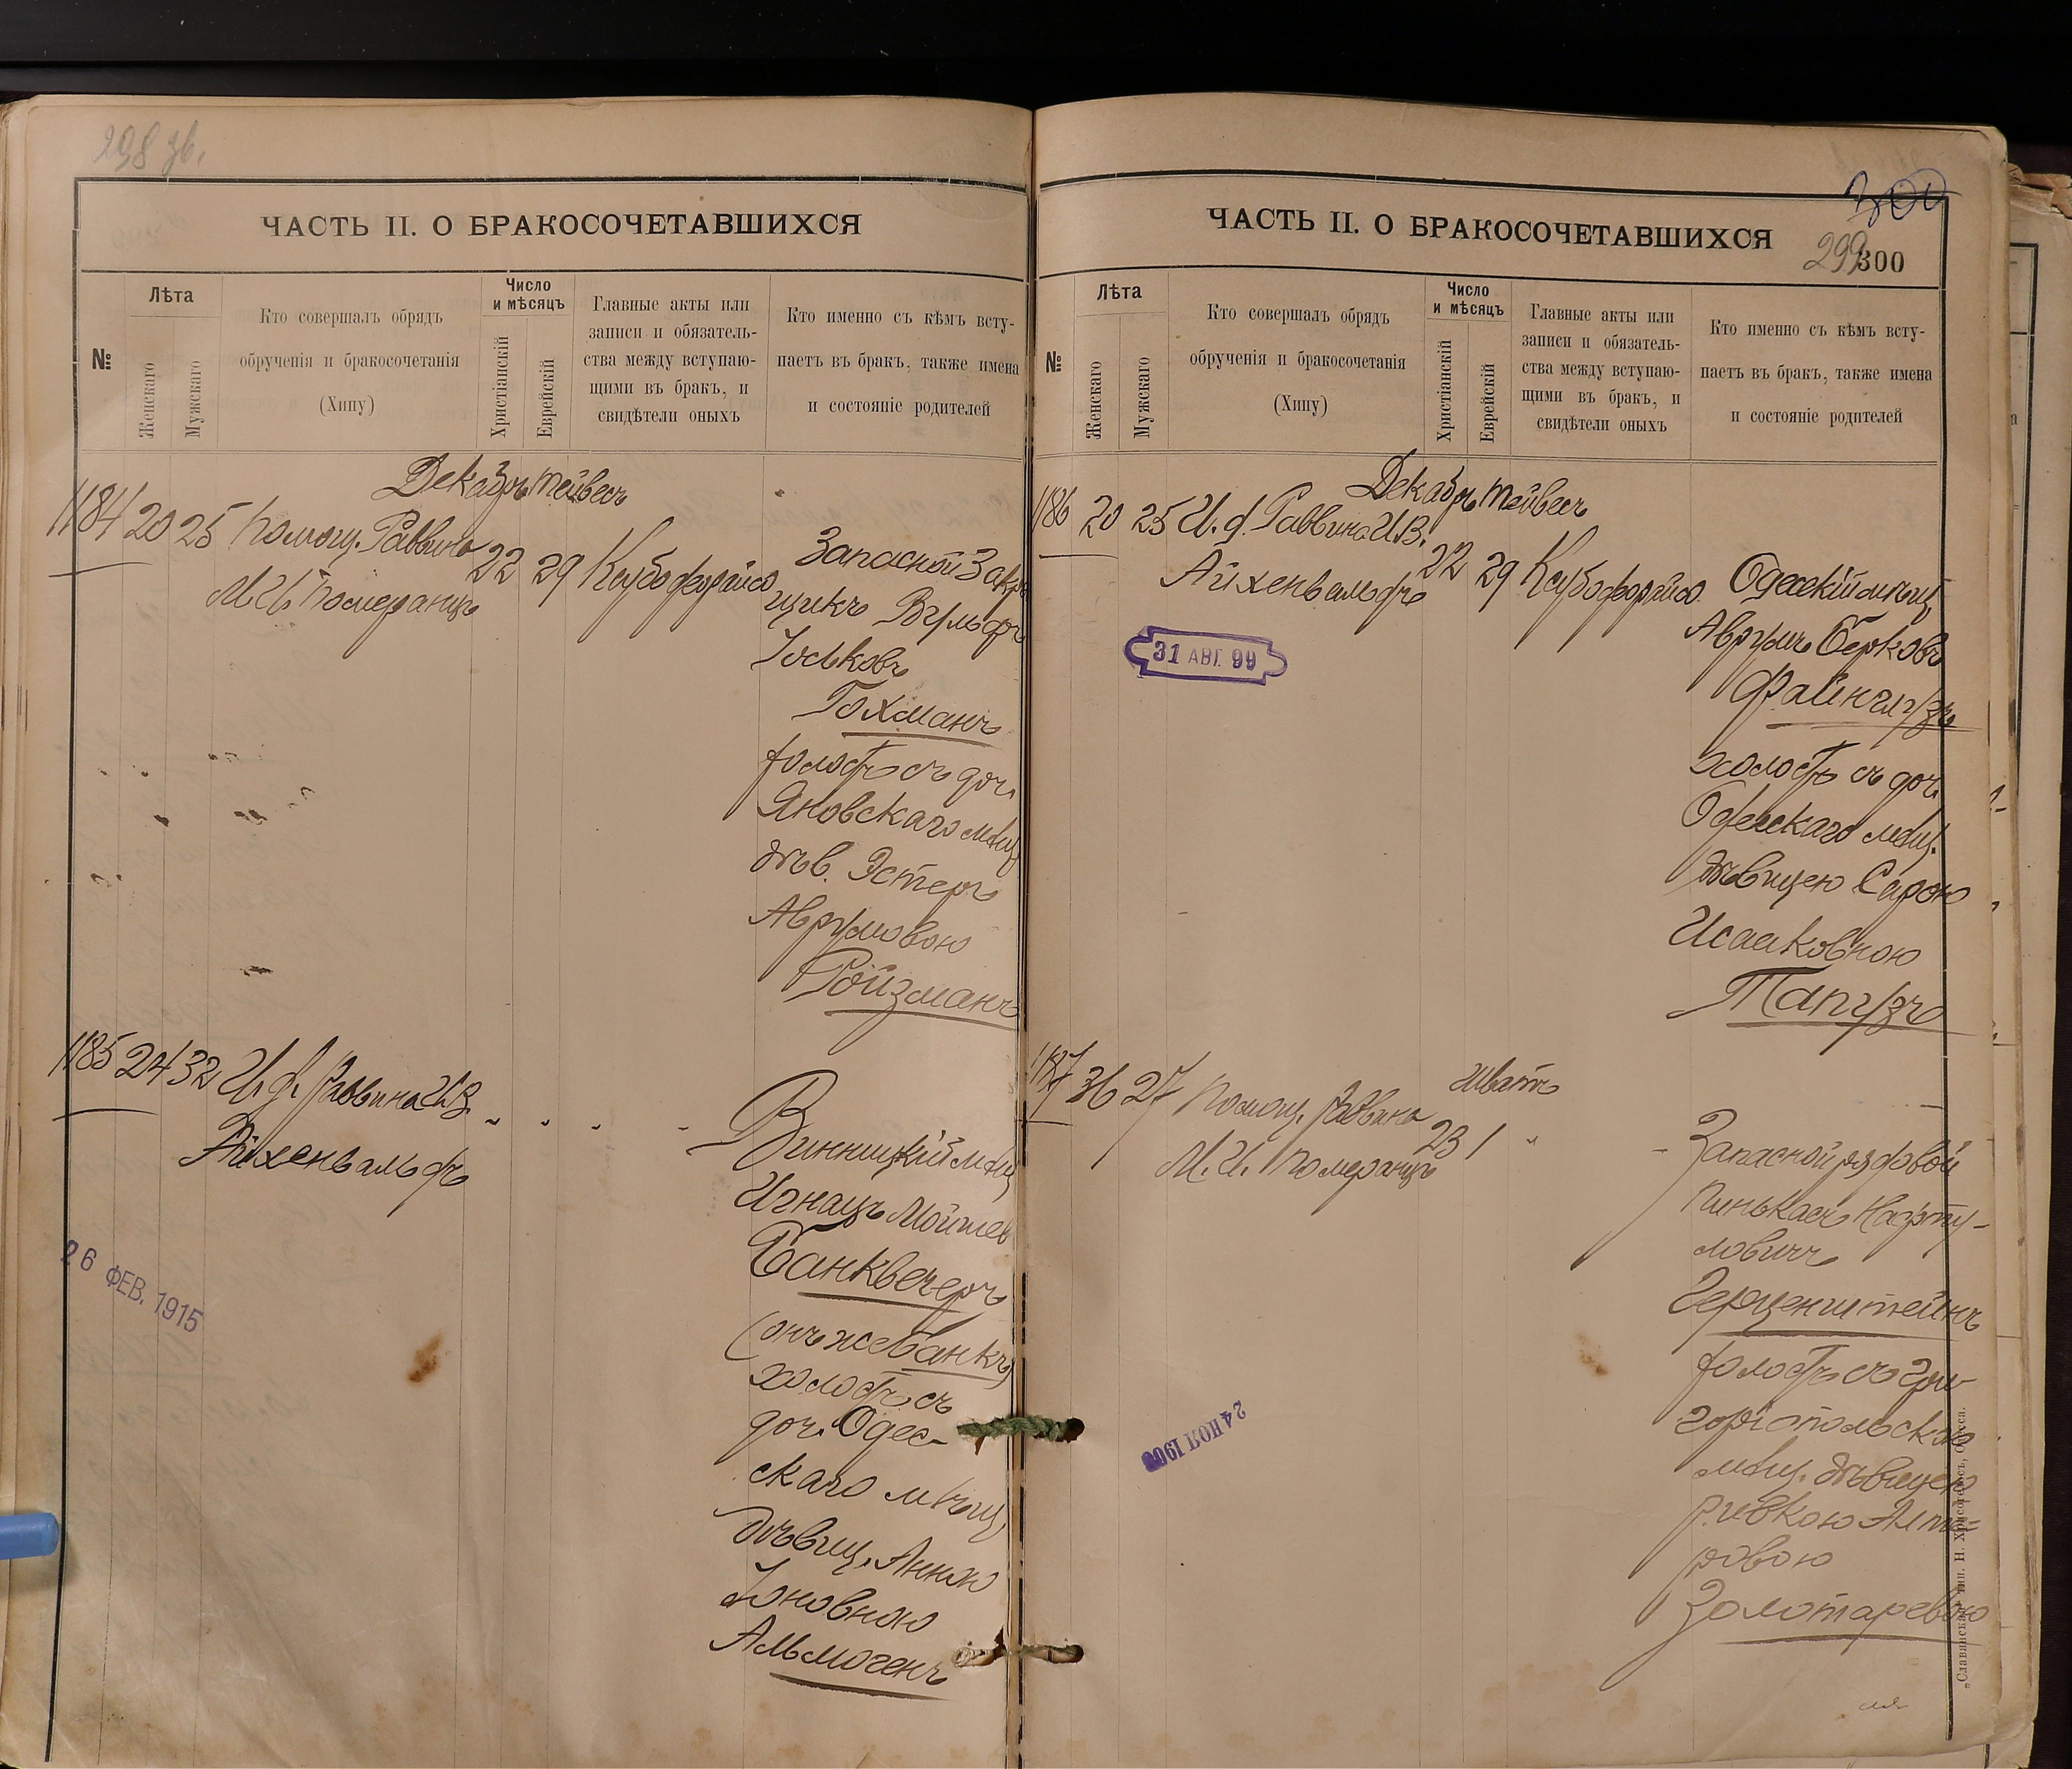 298 зв.
ЧАСТЬ II. О БРАКОСОЧЕТАВШИХСЯ
№
Лѣта
Женскаго
Мужскаго
Кто совершалъ обрядъ
обрученія и бракосочетанія
(Хипу)
Число
и мѣсяцъ
Христіанскій
Еврейскій
Главные акты или
записи и обязатель-
ства между вступаю-
щими въ бракъ, и
свидѣтели оныхъ
Кто именно съ кѣмъ всту-
паетъ въ бракъ, также имена
и состояніе родителей
Декабрь Тейвесъ
1184 20 25 Помощ. Раввина 22 29
М. И. Померанцъ
Запасной
щикъ Вульфъ
Іоськовъ
Гохманъ
холостъ съ доч.
Яновскаго мѣщ.
дѣв. Эстеръ
Аврумовою
Ройзманъ
1185 24 32 И. д. Раввина И. В. " "
Айхенвальдъ
Винницкій мѣщ.
Игнацъ Мошков
Банквечеръ
(онъ же Банкъ)
холостъ съ
доч. Одес-
скаго мѣщ.
дѣвиц. Анною
Іоновною
Альмогенъ
26 ФЕВ. 1915
ЧАСТЬ II. О БРАКОСОЧЕТАВШИХСЯ
300
299
300
№
Лѣта
Женскаго
Мужскаго
Кто совершалъ обрядъ
обрученія и бракосочетанія
(Хипу)
Число
и мѣсяцъ
Христіанскій
Еврейскій
Главные акты или
записи и обязатель-
ства между вступаю-
щими въ бракъ, и
свидѣтели оныхъ
Кто именно съ кѣмъ всту-
паетъ въ бракъ, также имена
и состояніе родителей
Декабрь Тейвесъ
1186 20 25 И. д. Раввина И. В. 22 29
Айхенвальдъ
31 АВГ. 99
Одесскій мѣщ.
Аврумъ Берковъ
Файнглузъ
холостъ съ доч.
Одесскаго мѣщ.
дѣвицею Сарою
Исааковною
Тапузъ
Шватъ
1187 36 27 Помощ. Раввина 23 1 "
М. И. Померанцъ
Запасной рядовой
Пинькасъ Нафту-
ловичъ
Герценштейнъ
холостъ съ Гри-
горіопольскою
мѣщ. дѣвицею
Ривкою Альте-
ровою
Золотаревою
24 НОЯ 190
„Славянская" тип. Н. Хрисогелосъ, Одесса.